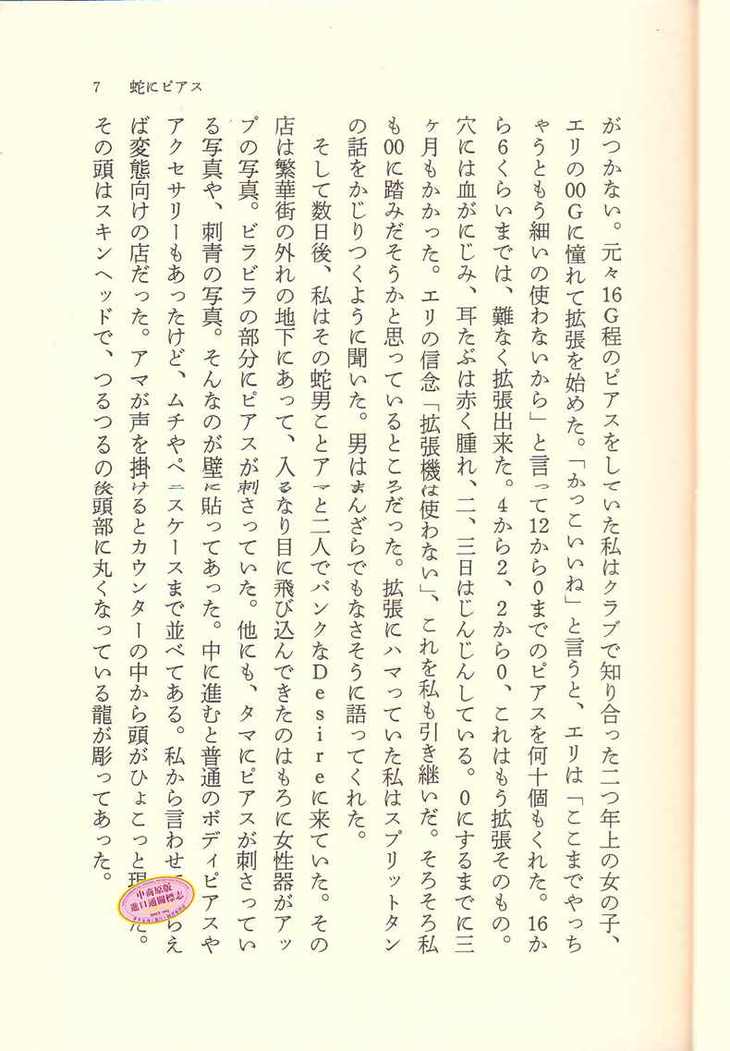 7 蛇にピアス
がつかない。元々16G程のピアスをしていた私はクラブで知り合った二つ年上の女の子、
エリの00Gに憧れて拡張を始めた。「かっこいいね」と言うと、エリは「ここまでやっち
ゃうともう細いの使わないから」と言って12から0までのピアスを何十個もくれた。16か
ら6くらいまでは、難なく拡張出来た。4から2、2から0、これはもう拡張そのもの。
穴には血がにじみ、耳たぶは赤く腫れ、二、三日はじんじんしている。0にするまでに三
ヶ月もかかった。エリの信念「拡張機は使わない」、これを私も引き継いだ。そろそろ私
も00に踏みだそうかと思っているところだった。拡張にハマっていた私はスプリットタン
の話をかじりつくように聞いた。男はまんざらでもなさそうに語ってくれた。
そして数日後、私はその蛇男ことアマと二人でパンクなDesireに来ていた。その
店は繁華街の外れの地下にあって、入るなり目に飛び込んできたのはもろに女性器がアッ
プの写真。ビラビラの部分にピアスが刺さっていた。他にも、タマにピアスが刺さってい
る写真や、刺青の写真。そんなのが壁に貼ってあった。中に進むと普通のボディピアスや
アクセサリーもあったけど、ムチやペニスケースまで並べてある。私から言わせ らえ
ば変態向けの店だった。アマが声を掛けるとカウンターの中から頭がひょこっと現 た。
その頭はスキンヘッドで、つるつるの後頭部に丸くなっている龍が彫ってあった。
中商原版
進口通關標志